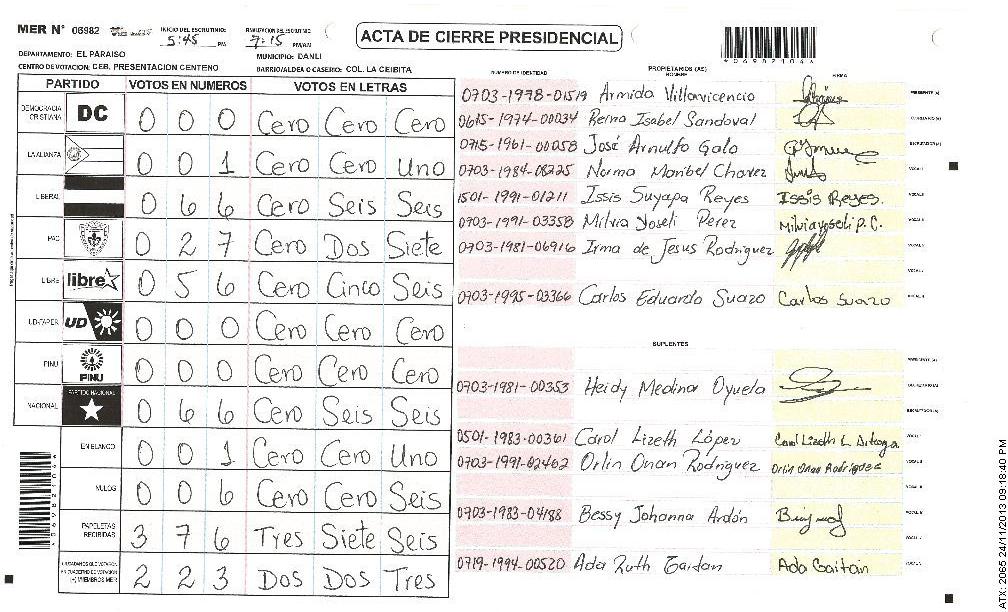 MER N° 06982 INICIO DEL ESCRUTINIO: 5:45 PM 7:15 PM/AM
ACTA DE CIERRE PRESIDENCIAL
*069821046*
DEPARTAMENTO: EL PARAISO MUNICIPIO: DANLI
CENTRO DE VOTACION: CEB. PRESENTACION CENTENO BARRIO/ALDEA O CASERIO: COL. LA CEIBITA
PARTIDO VOTOS EN NUMEROS VOTOS EN LETRAS
DEMOCRACIA CRISTIANA DC 0 0 0 Cero Cero Cero
LA ALIANZA 0 0 1 Cero Cero Uno
LIBERAL 0 6 6 Cero Seis Seis
PAC 0 2 7 Cero Dos Siete
LIBRE libre 0 5 6 Cero Cinco Seis
UD-FAPER UD 0 0 0 Cero Cero Cero
PINU PINU 0 0 0 Cero Cero Cero
NACIONAL PARTIDO NACIONAL 0 6 6 Cero Seis Seis
EN BLANCO 0 0 1 Cero Cero Uno
NULOS 0 0 6 Cero Cero Seis
PAPELETAS RECIBIDAS 3 7 6 Tres Siete Seis
CIUDADANOS QUE VOTARON EN CUADERNO DE VOTACION (+) MIEMBROS MER 2 2 3 Dos Dos Tres
NUMERO DE IDENTIDAD PROPIETARIOS (AS) NOMBRE FIRMA
0703-1978-01519 Armida Villavicencio PRESIDENTE (A)
0615-1974-00034 Reina Isabel Sandoval SECRETARIO (A)
0715-1961-00058 José Arnulfo Galo ESCRUTADOR (A)
0703-1984-08225 Norma Maribel Chavez VOCAL I
1501-1991-01211 Issis Suyapa Reyes Issis Reyes. VOCAL II
0703-1991-03358 Milvia Joseli Perez Milviayoseli P.C.
0703-1981-06916 Irma de Jesus Rodriguez
0703-1995-03366 Carlos Eduardo Suazo Carlos Suazo
SUPLENTES
PRESIDENTE (A)
0703-1981-00353 Heidy Medina Oyuela SECRETARIO (A)
ESCRUTADOR (A)
0501-1983-00361 Carol Lizeth López Carol Lizeth L. Arteaga
0703-1991-02462 Orlin Onan Rodriguez Orlin Onan Rodriguez
0703-1983-04188 Bessy Johanna Ardón
0719-1994-00520 Ada Ruth Gaitan Ada Gaitan
ATX: 2065 24/11/2013 09:18:40 PM